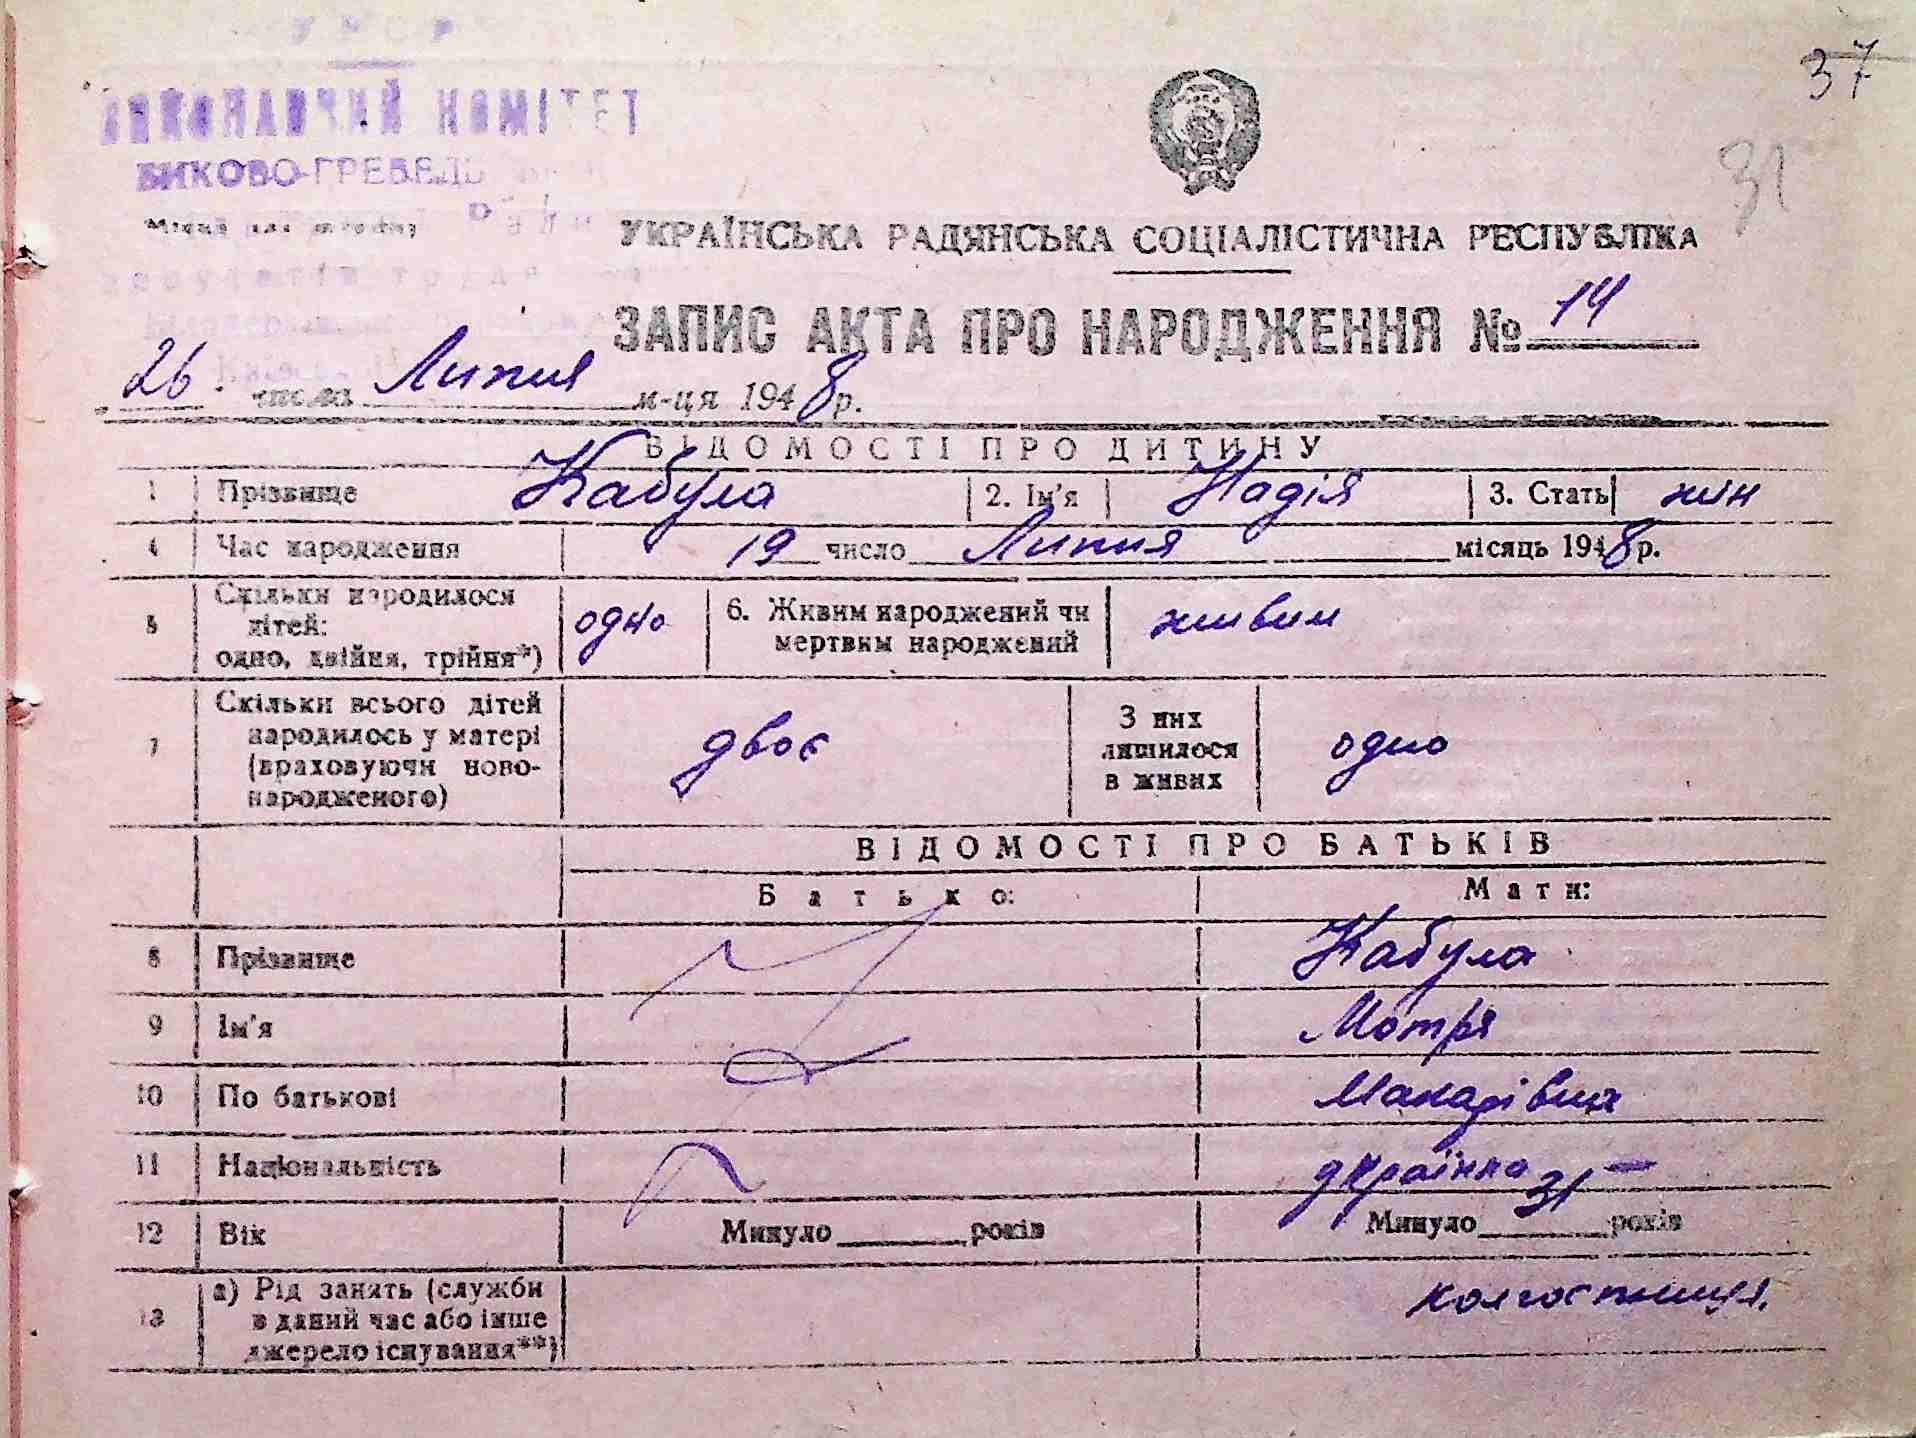 УРСР
37
ВИКОНАВЧИЙ КОМІТЕТ
БИКОВО-ГРЕБЕЛЬ
31
Ради
УКРАЇНСЬКА РАДЯНСЬКА СОЦІАЛІСТИЧНА РЕСПУБЛІКА
депутатів трудящих
ЗАПИС АКТА ПРО НАРОДЖЕННЯ № 14
26 числа Липня м-ця 1948 р.
ВІДОМОСТІ ПРО ДИТИНУ
1 Прізвище Кабула 2. Ім'я Надія 3. Стать жін
4 Час народження 19 число Липня місяць 1948 р.
5 Скільки народилося дітей: одно, двійня, трійня*) одно 6. Живим народжений чи мертвим народжений живим
7 Скільки всього дітей народилось у матері (враховуючи новонародженого) двоє З них лишилося в живих одно
ВІДОМОСТІ ПРО БАТЬКІВ
Батько: Мати:
8 Прізвище Кабула
9 Ім'я Мотря
10 По батькові Макарівна
11 Національність українка
12 Вік Минуло років Минуло 31 років
13 а) Рід занять (служби в даний час або інше джерело існування**) колгоспниця.